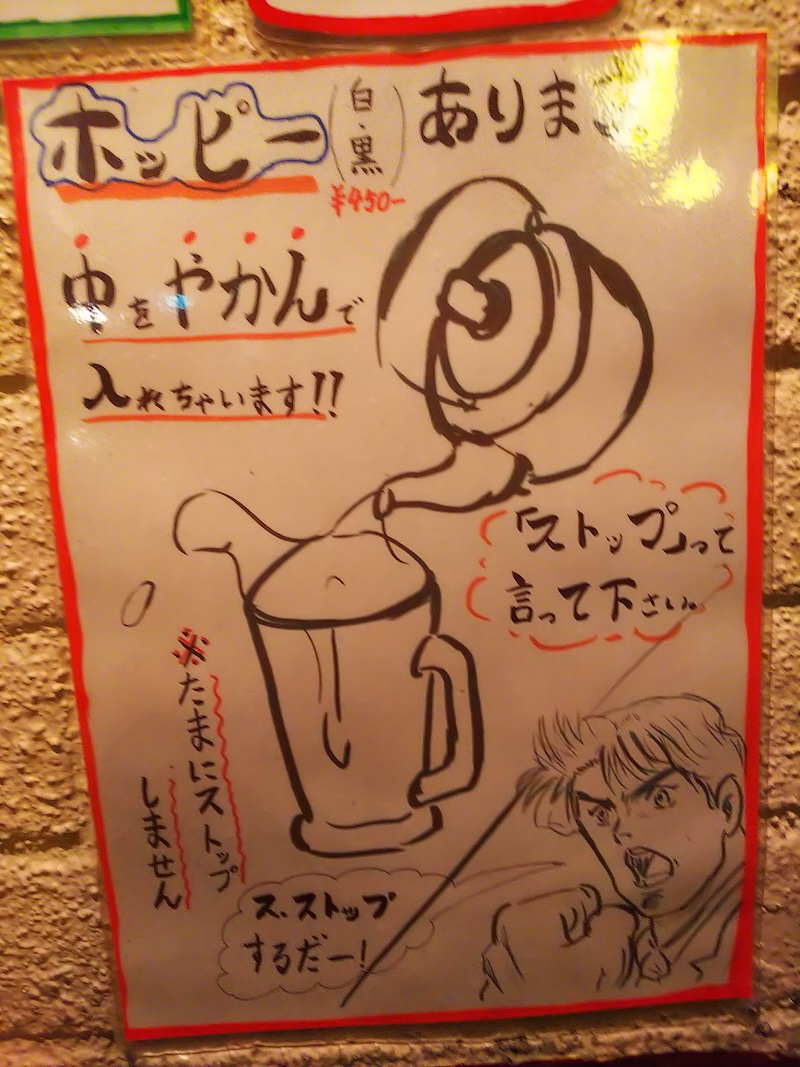 ホッピー(白・黒)ありま
¥450-
中をやかんで
入れちゃいます!!
「ストップ」って
言って下さい。
※たまにストップ
しません
ス、ストップ
するだー!